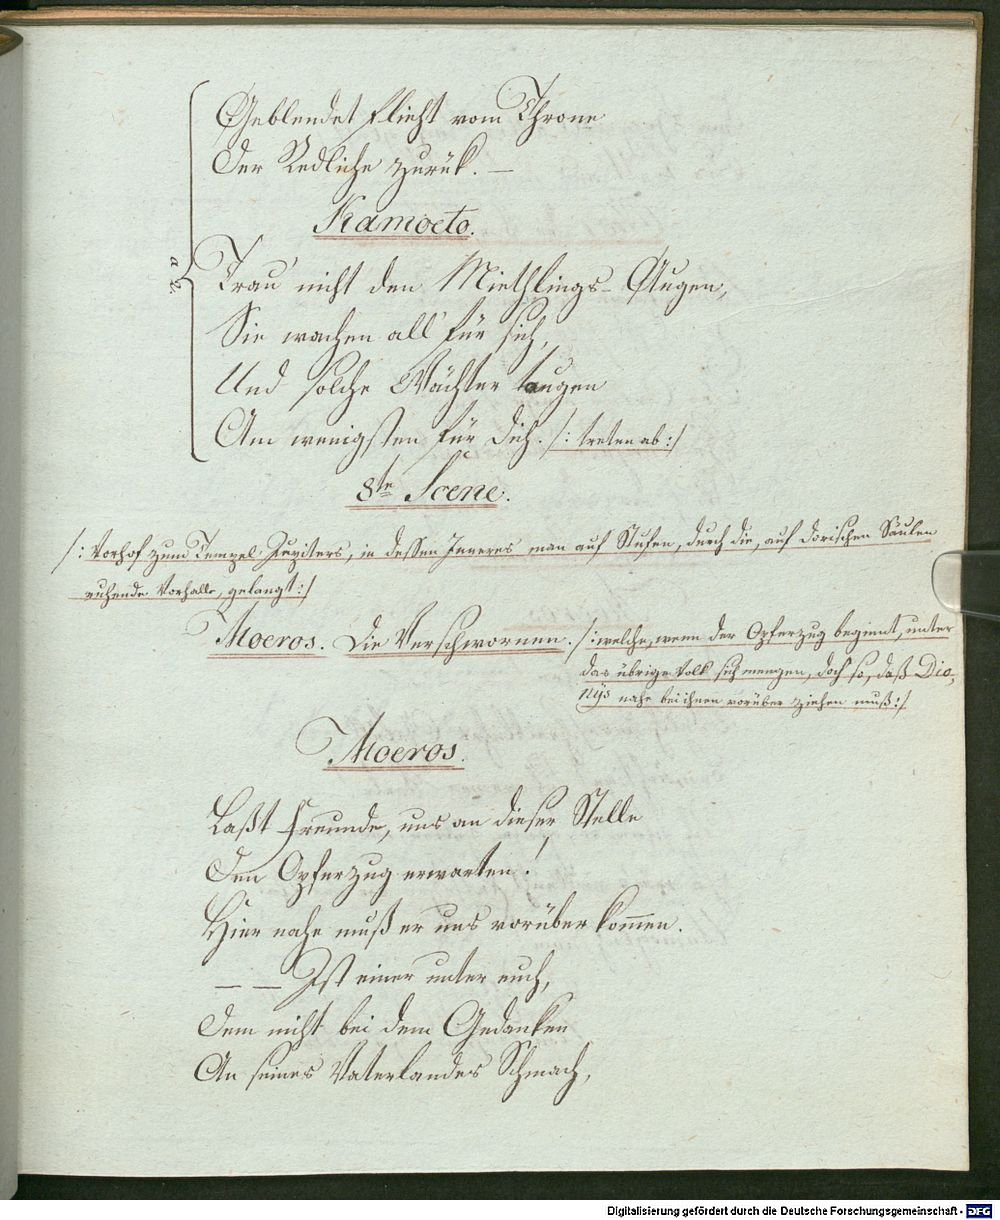 Geblendet flieht vom Throne
Der Redliche zurük. —
Kamoeto.
a 2.
Trau' nicht den Miethlings-Augen,
Sie wachen all' für sich,
Und solche Wächter taugen
Am wenigsten für Dich. /: treten ab :/
8te Scene.
/: Vorhof zum Tempel Jupiters, in dessen Inneres man auf Stufen, durch die, auf dorischen Säulen
ruhende Vorhalle, gelangt :/
Moeros. Die Verschwornen. /: welche, wenn der Opferzug beginnt, unter
das übrige Volk sich mengen, doch so, daß Dio-
nys nahe bei ihnen vorüber ziehen muß :/
Moeros.
Laßt Freunde, uns an dieser Stelle
Den Opferzug erwarten!
Hier nahe muß er uns vorüber kom̄en.
— — Ist einer unter euch,
Dem nicht bei dem Gedanken
An seines Vaterlandes Schmach,
Digitalisierung gefördert durch die Deutsche Forschungsgemeinschaft - DFG